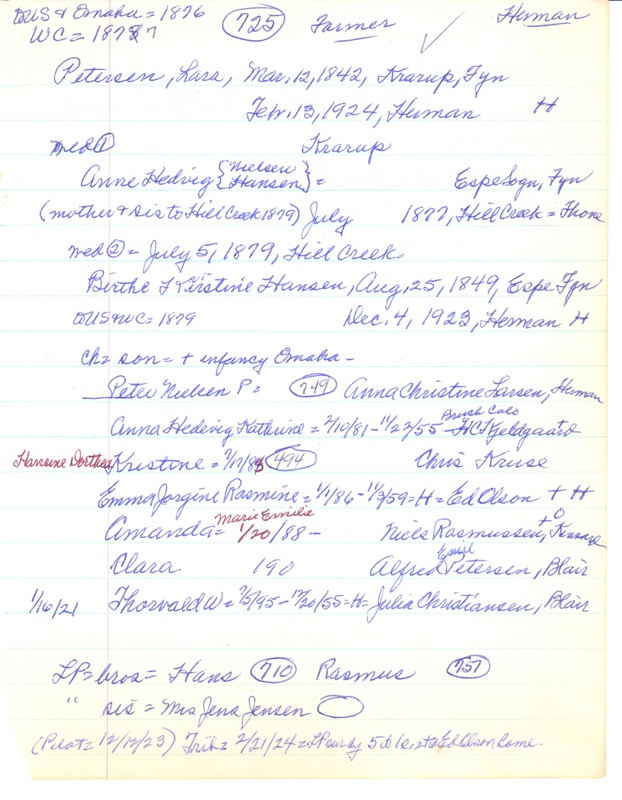 to US & Omaha = 1876 (725) Farmer Herman
WC = 1877
Petersen, Lars, Mar. 12, 1842, Krarup, Fyn
Febr. 13, 1924, Herman H
med ① Krarup
Anne Hedvig {Nielsen Hansen} = Espe Sogn, Fyn
(mother & sis to Hill Creek 1879) July 1877, Hill Creek =
med ② = July 5, 1879, Hill Creek.
Birthe Kirstine Hansen, Aug. 25, 1849, Espe Fyn
to US & WC = 1879 Dec. 4, 1923, Herman H
Ch = son = + infancy Omaha -
Peter Nielsen P = (749) Anna Christine Larsen, Herman
Anna Hedevig Kathrine = 2/10/81 - 11/22/55 - Brush Colo HC Kjeldgaard
Hansine Dorthea Kristine = (494) Chris Kruse
Emma Jorgine Rasmine = 1/1/86 - 11/3/59 = H = Ed Olson + H
Amanda = Marie Emilie 1/20/88 - Niels Rasmussen, + O
Clara 190 Alfred Emil Petersen, Blair
1/16/21 Thorvald W = 7/5/95 - 12/20/55 = H = Julia Christiansen, Blair
LP = bros = Hans (710) Rasmus (757)
" sis = Mrs Jens Jensen
(Pilot = 12/12/23) Trib = 2/21/24 = LP surv by 5 ch, Ed Olson home.